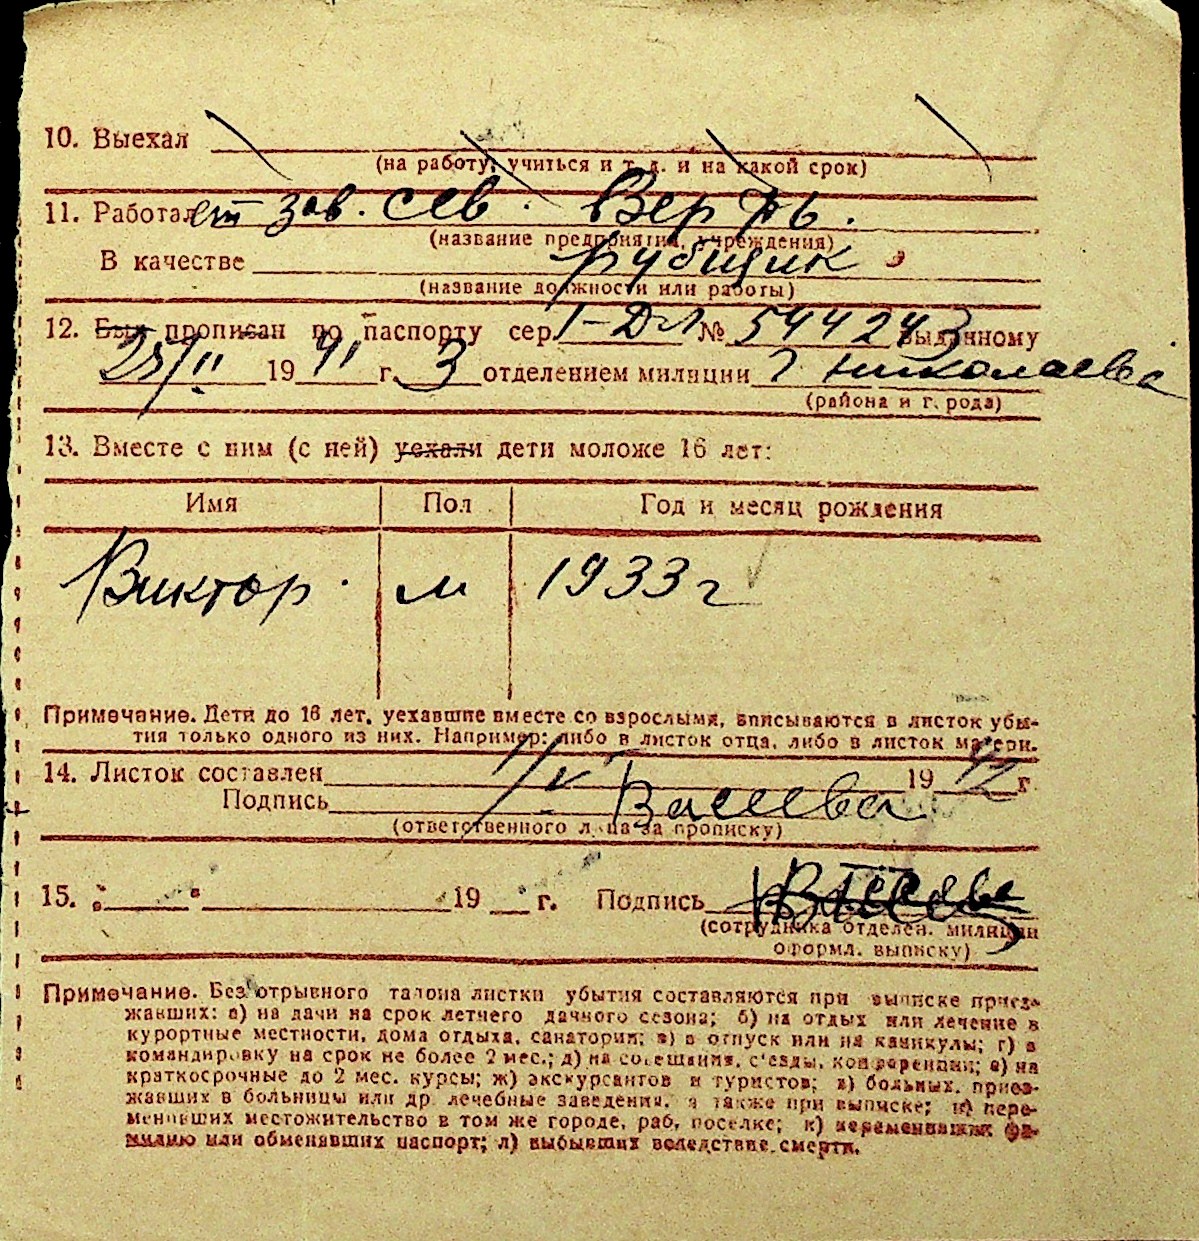 10. Выехал
(на работу, учиться и т. д. и на какой срок)
11. Работает зав. Сев. Верфь.
(название предприятия, учреждения)
В качестве рубщик
(название должности или работы)
12. Был прописан по паспорту сер. № 544243 выданному
25/II 1941 г. 3 отделением милиции г Николаева
(района и города)
13. Вместе с ним (с ней) уехали дети моложе 16 лет:
Имя Пол Год и месяц рождения
Виктор. м 1933 г
Примечание. Дети до 16 лет, уехавшие вместе со взрослыми, вписываются в листок убы-
тия только одного из них. Например: либо в листок отца, либо в листок матери.
14. Листок составлен 1/V 1942 г.
Подпись
(ответственного лица за прописку)
15. " " 19 г. Подпись
(сотрудника отделен. милиции
оформл. выписку)
Примечание. Без отрывного талона листки убытия составляются при выписке приез-
жавших: а) на дачи на срок летнего дачного сезона; б) на отдых или лечение в
курортные местности, дома отдыха, санатории; в) в отпуск или на каникулы; г) в
командировку на срок не более 2 мес.; д) на совещания, с'езды, конференции; е) на
краткосрочные до 2 мес. курсы; ж) экскурсантов и туристов; з) больных, приез-
жавших в больницы или др. лечебные заведения, а также при выписке; и) пере-
менивших местожительство в том же городе, раб. поселке; к) переменивших фа-
милию или обменявших паспорт; л) выбывших вследствие смерти.